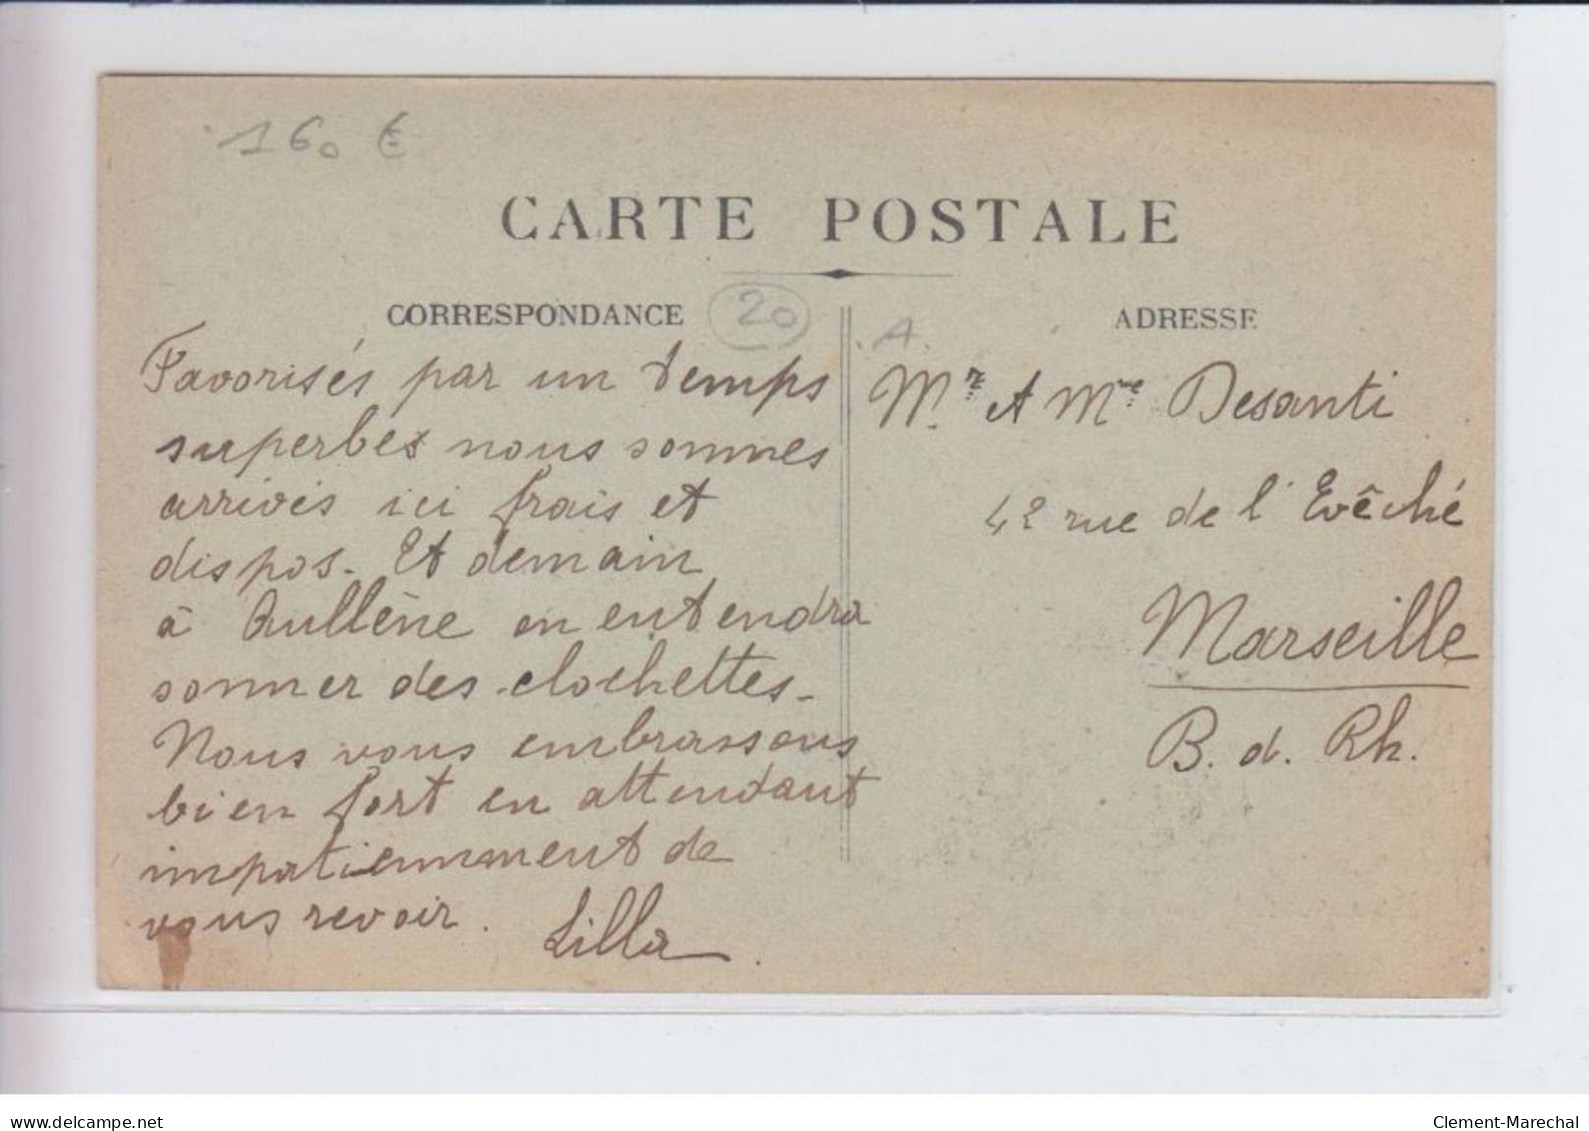 160 €
CARTE POSTALE
CORRESPONDANCE
20
A.
ADRESSE
Favorisés par un temps
superbes nous sommes
arrivés ici frais et
dispos. Et demain
à Aullène on entendra
sonner des clochettes.
Nous vous embrassons
bien fort en attendant
impatiemment de
vous revoir.
Lilla.
Mr et Mme Desanti
42 rue de l'Evêché
Marseille
B. d. Rh.
www.delcampe.net
Clement-Marechal